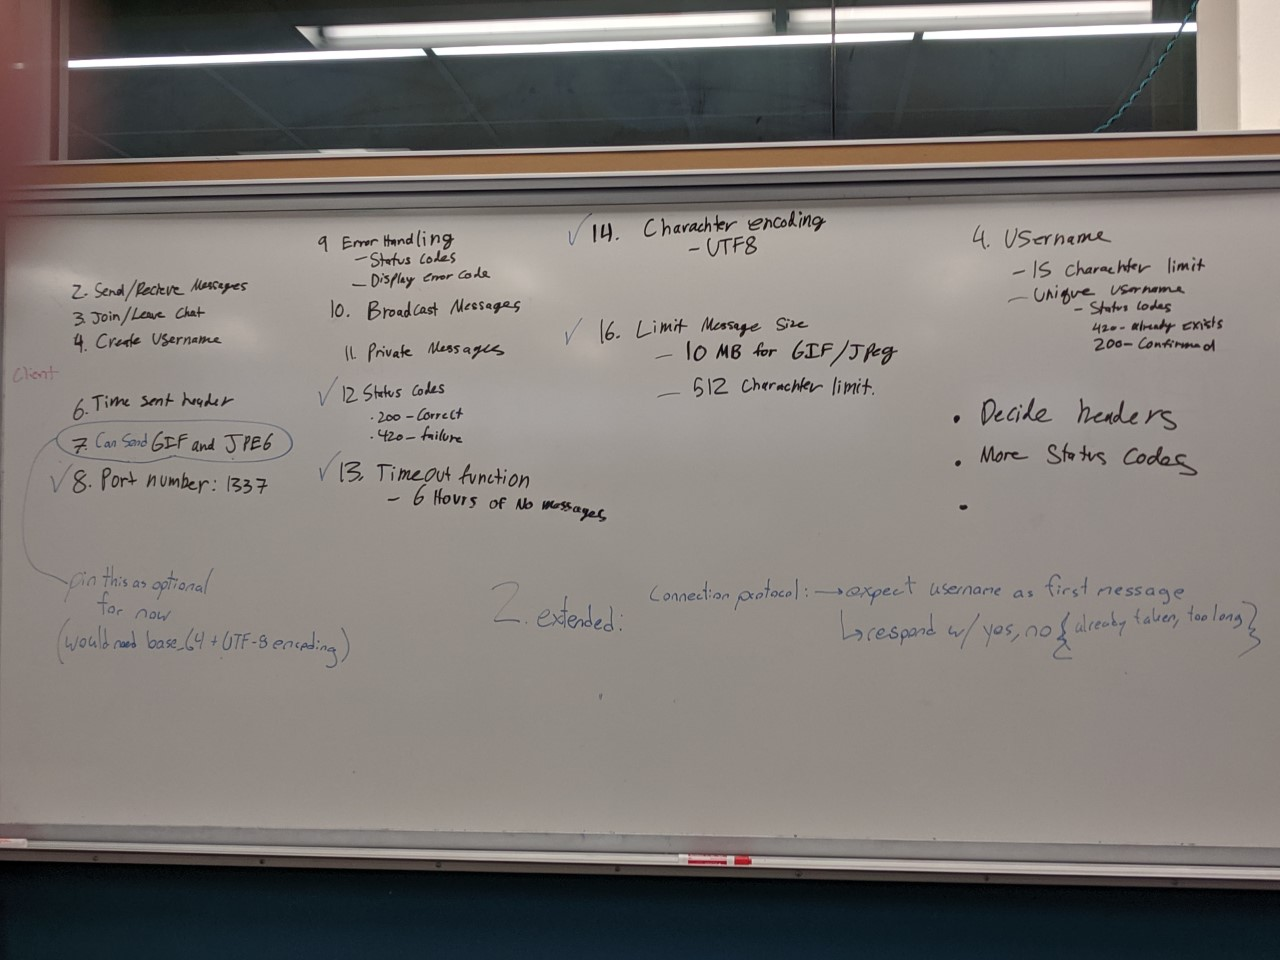 2. Send/Recieve Messages
3. Join/Leave Chat
4. Create Username
Client
6. Time sent header
7. Can Send GIF and JPEG
✓ 8. Port number: 1337
pin this as optional
for now
(would need base_64 + UTF-8 encoding)
9 Error Handling
- Status codes
- Display error code
10. Broadcast Messages
11. Private Messages
✓ 12 Status Codes
· 200 - Correct
· 420 - failure
✓ 13. Timeout function
- 6 Hours of No messages
✓ 14. Charachter encoding
- UTF8
✓ 16. Limit Message Size
- 10 MB for GIF/Jpeg
- 512 Charachter limit.
4. Username
- 15 Charachter limit
- Unique Username
- Status Codes
420 - already exists
200 - Confirmed
• Decide headers
• More Status Codes
•
2. extended:
Connection protocol: → expect username as first message
↳ respond w/ yes, no { already taken, too long }